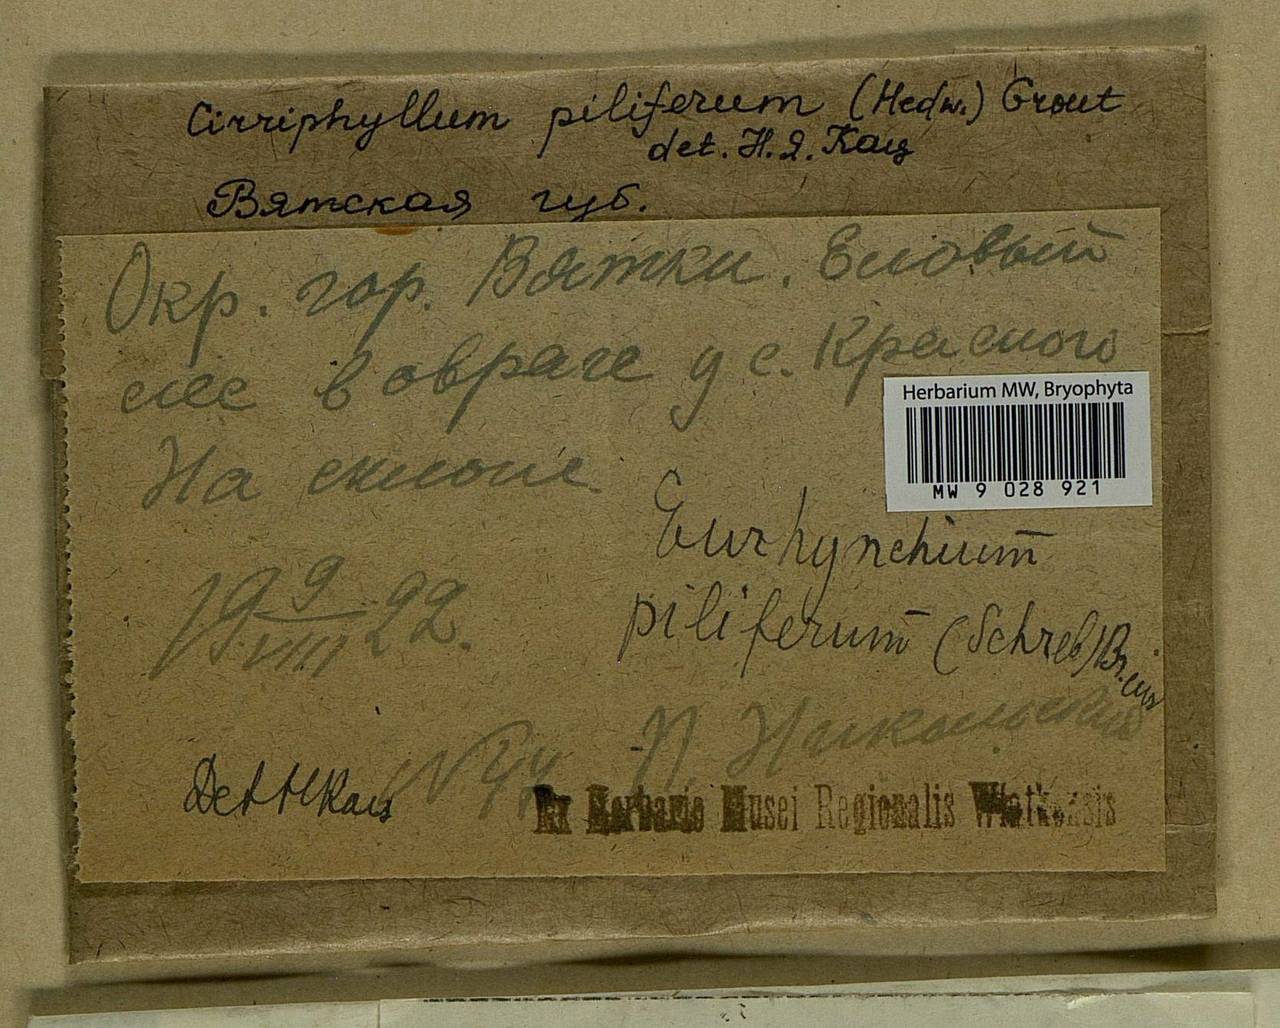 Cirriphyllum piliferum (Hedw.) Grout
det. Н. Я. Кац
Вятская губ.
Окр. гор. Вятки. Еловый
лес в овраге у с. Красного
На склоне
Herbarium MW, Bryophyta
MW 9 028 921
Eurhynchium
piliferum (Schreb) Br. eur
19 9/VIII 22.
П. Никольский
Det Н Кац
Ex Herbario Musei Regionalis Wiatkensis